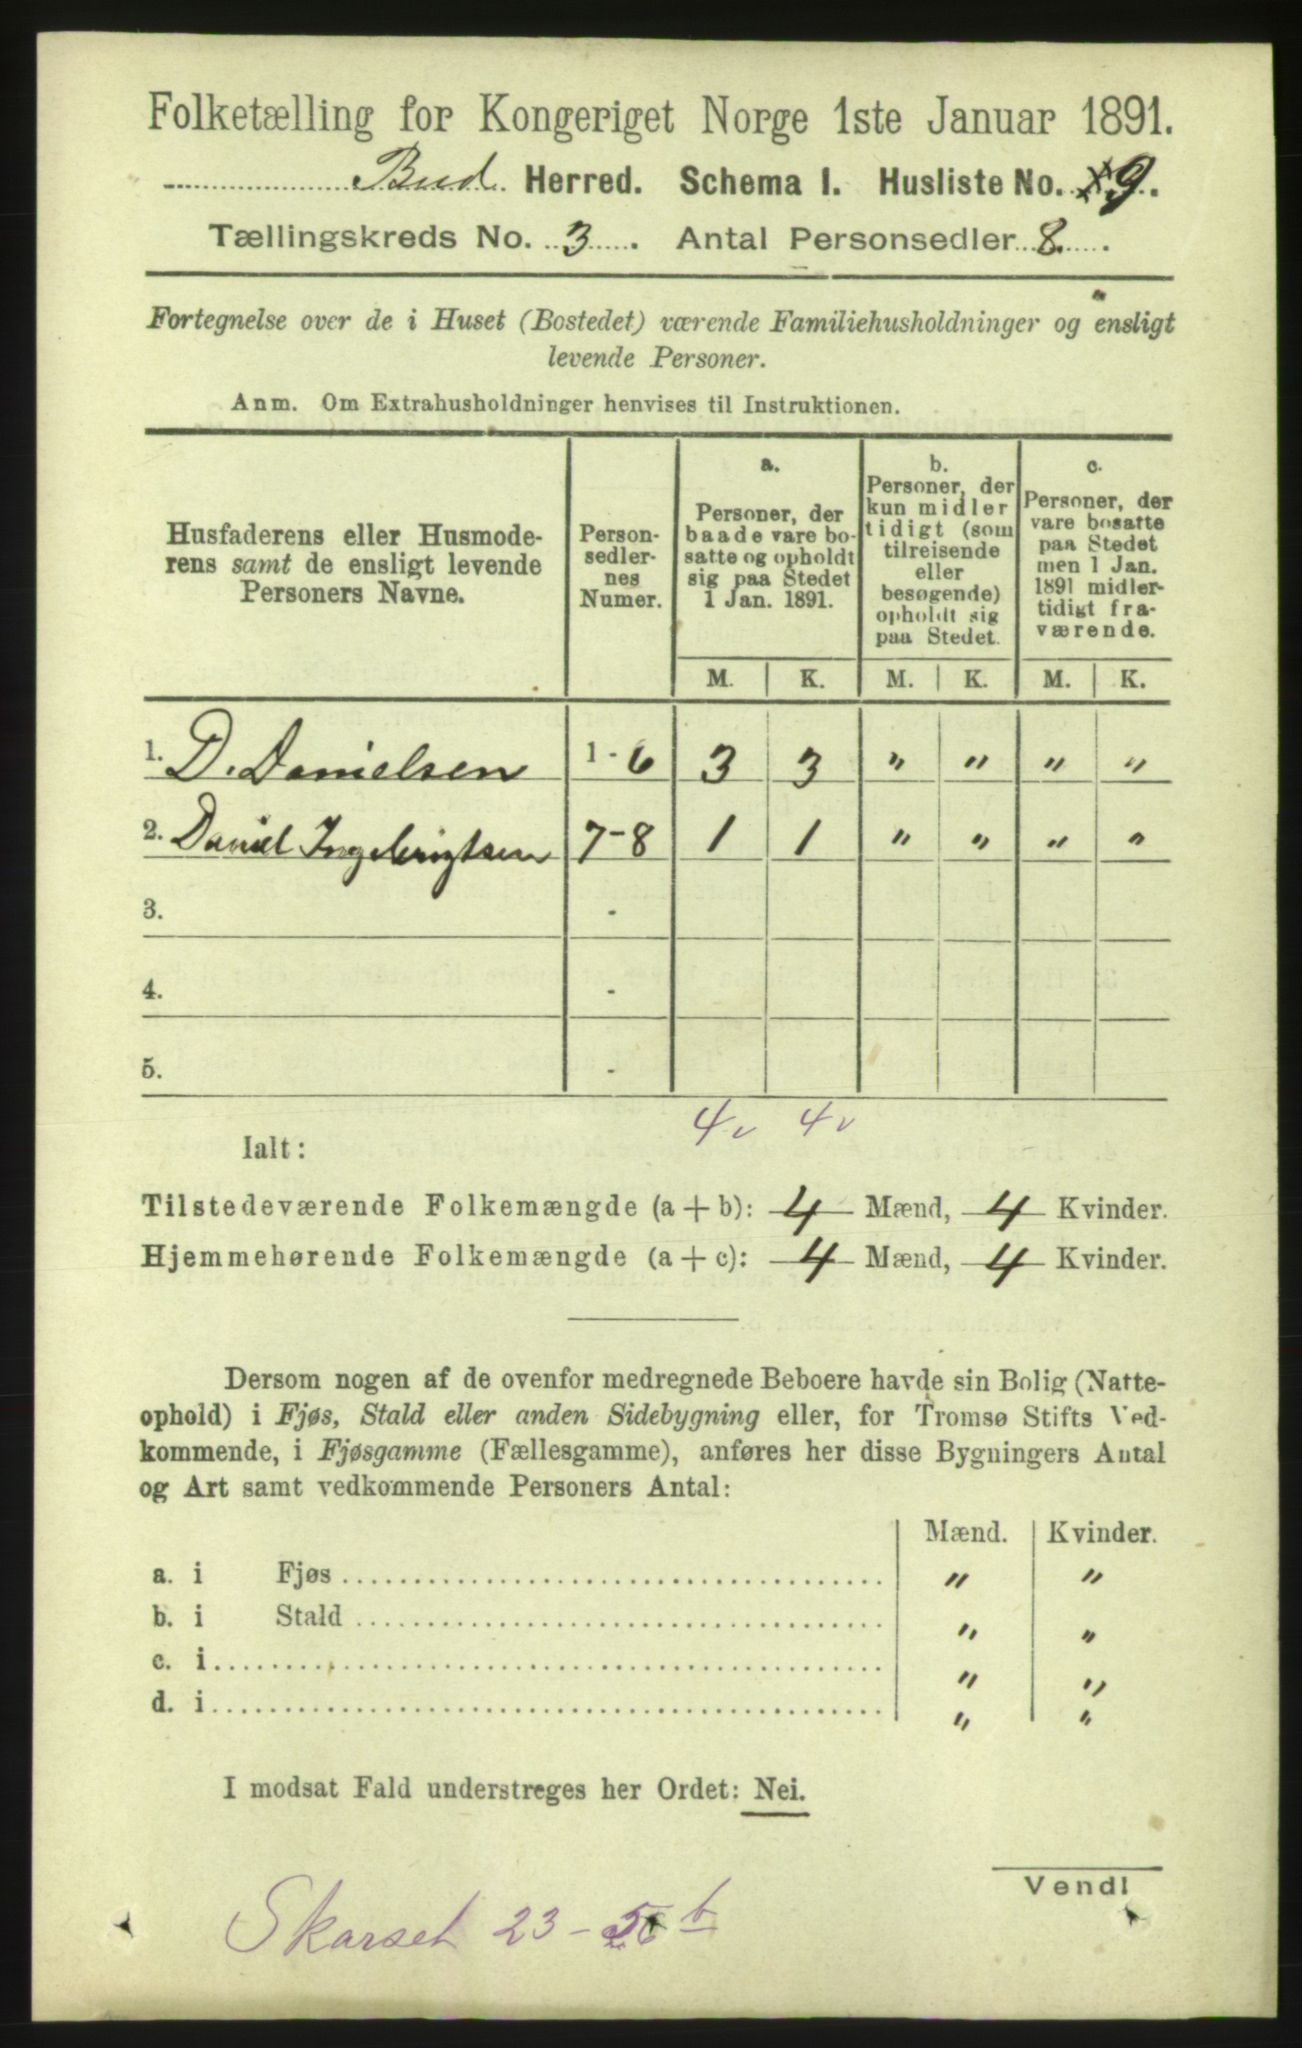 Folketælling for Kongeriget Norge 1ste Januar 1891.
Bud Herred. Schema I. Husliste No. 9.
Tællingskreds No. 3. Antal Personsedler 8.
Fortegnelse over de i Huset (Bostedet) værende Familiehusholdninger og ensligt
levende Personer.
Anm. Om Extrahusholdninger henvises til Instruktionen.
Husfaderens eller Husmode-
rens samt de ensligt levende
Personers Navne.
Person-
sedler-
nes
Numer.
a.
Personer, der
baade vare bo-
satte og opholdt
sig paa Stedet
1 Jan. 1891.
b.
Personer, der
kun midler
tidigt (som
tilreisende
eller
besøgende)
opholdt sig
paa Stedet.
c.
Personer, der
vare bosatte
paa Stedet
men 1 Jan.
1891 midler-
tidigt fra-
værende.
M. K. M. K. M. K.
1. D. Danielsen 1-6 3 3 " " " "
2. Daniel Ingebrigtsen 7-8 1 1 " " " "
3. -
4. -
5. -
4 v 4 v
Ialt:
Tilstedeværende Folkemængde (a + b): 4 Mænd, 4 Kvinder.
Hjemmehørende Folkemængde (a + c): 4 Mænd, 4 Kvinder.
Dersom nogen af de ovenfor medregnede Beboere havde sin Bolig (Natte-
ophold) i Fjøs, Stald eller anden Sidebygning eller, for Tromsø Stifts Ved-
kommende, i Fjøsgamme (Fællesgamme), anføres her disse Bygningers Antal
og Art samt vedkommende Personers Antal:
Mænd. Kvinder.
a. i Fjøs " "
b. i Stald " "
c. i " "
d. i " "
I modsat Fald understreges her Ordet: Nei.
Vend!
Skarset 23 - b